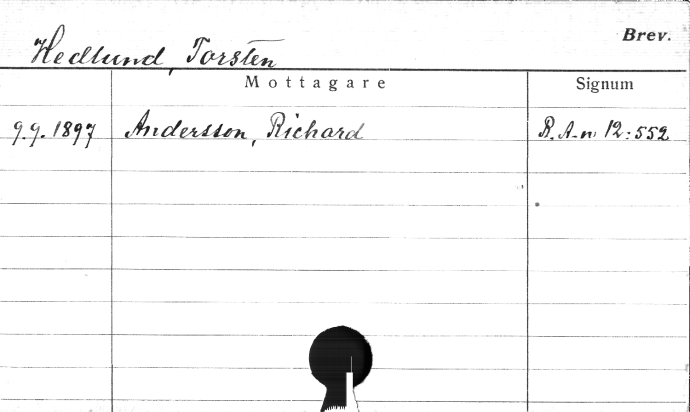 Brev.
Hedlund, Torsten
Mottagare Signum
9.9. 1897 Andersson, Richard R. A-n 12:552